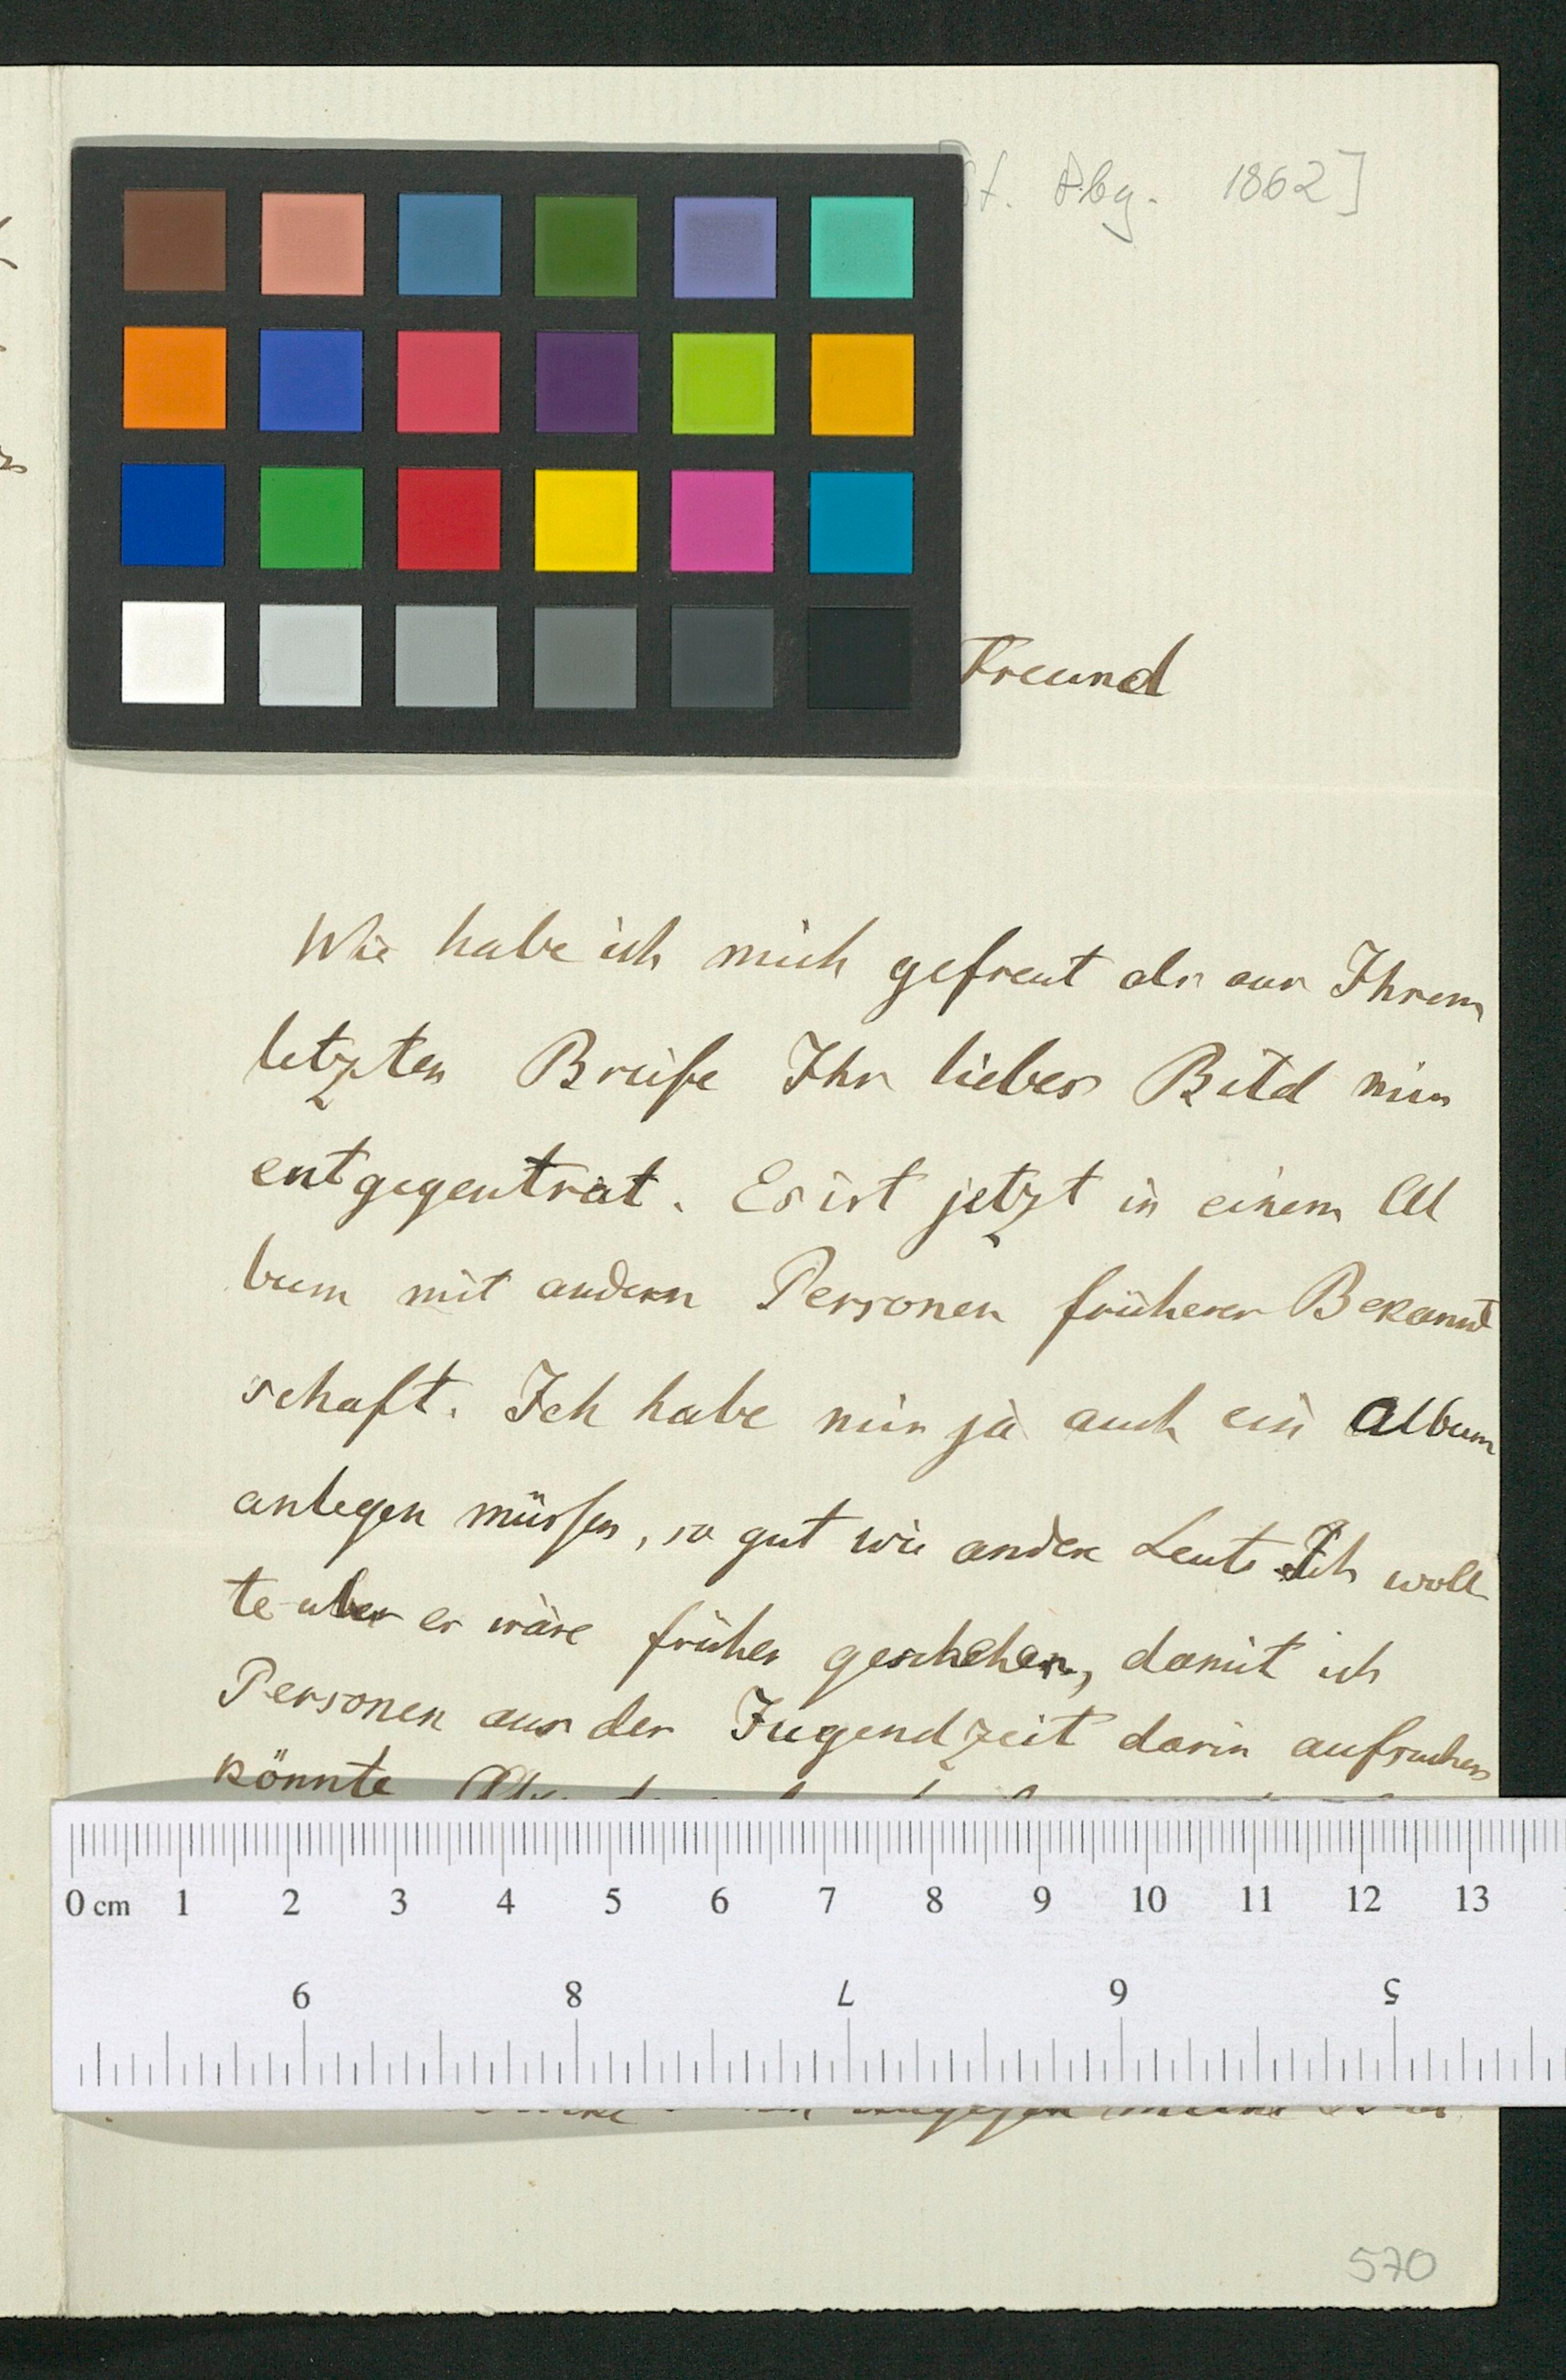 1862]
Freund
Wie habe ich mich gefreut als aus Ihrem
letzten Briefe Ihr liebes Bild mir
entgegentrat. Es ist jetzt in einem Al
bum mit andern Personen früherer Bekannt
schaft. Ich habe mir ja auch ein Album
anlegen müssen, so gut wie andere Leute Ich woll
te aber es wäre früher geschehen, damit ich
Personen aus der Jugendzeit darin aufsuchen
könnte
0 cm 1 2 3 4 5 6 7 8 9 10 11 12 13
9 8 7 6 5
570